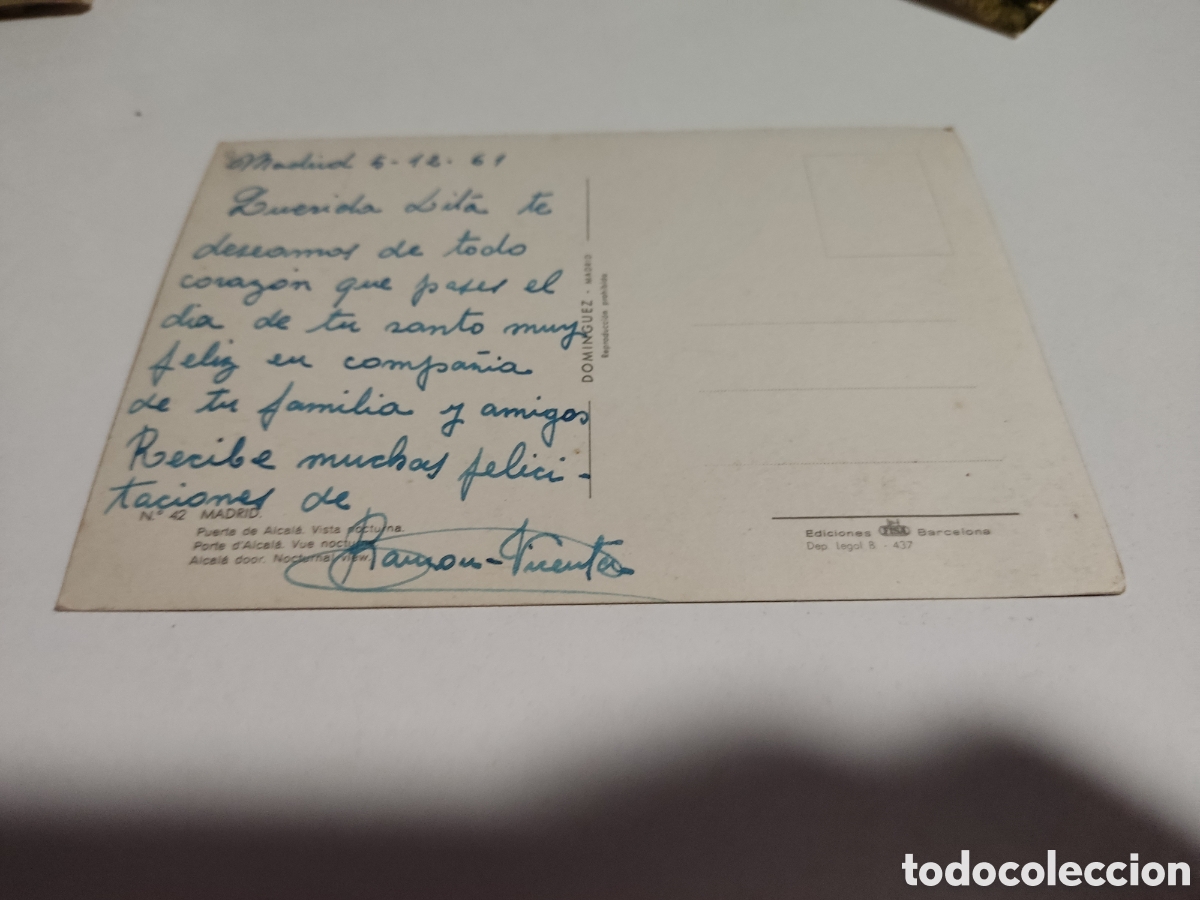 Madrid 5-12-61
Querida Lita te
deseamos de todo
corazón que pases el
dia de tu santo muy
feliz en compañia
de tu familia y amigos
Recibe muchas felici-
taciones de
Ramon-Vicenta
N.º 42 MADRID.
Puerta de Alcalá. Vista nocturna.
Porte d'Alcalá. Vue noctu
Alcalá door. Nocturnal view.
DOMINGUEZ - MADRID
Reproducción prohibida
Ediciones Barcelona
Dep. Legal B. - 437
todocoleccion